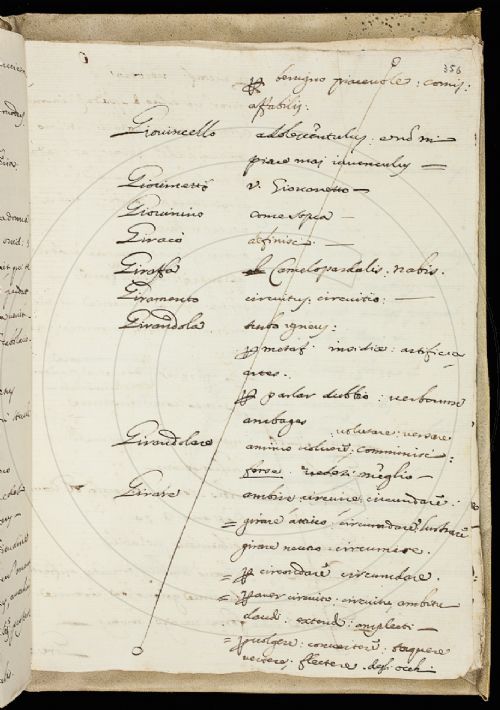 356
p benigno piacevole: comis:
affabilis:
Giovincello adolescentulus: e no mi
piace mai iuvenculus =
Giovinetto v. Giovanetto —
Giovinino come sopra —
Giraco definisc: —
Giraffa Camelopardalis. nabis.
Giramento circuitus. circuitio: —
Girandola turbo igneus:
p metaf: insidiæ: artificia
artes.
p parlar dubbio: verborum
ambages
volutare: versare
Girandolare animo volvere: comminisci:
forse. vedasi meglio —
Girare ambire circuire circundare:
= girare attivo: circumdare. lustrare
girare neutro. circumire.
= p circondare circundare.
= p aver circuito: circuitu ambitu
claudi: extendi: amplecti —
= p volgere: convertere: torquere
vertere: flectere. degl' occhi